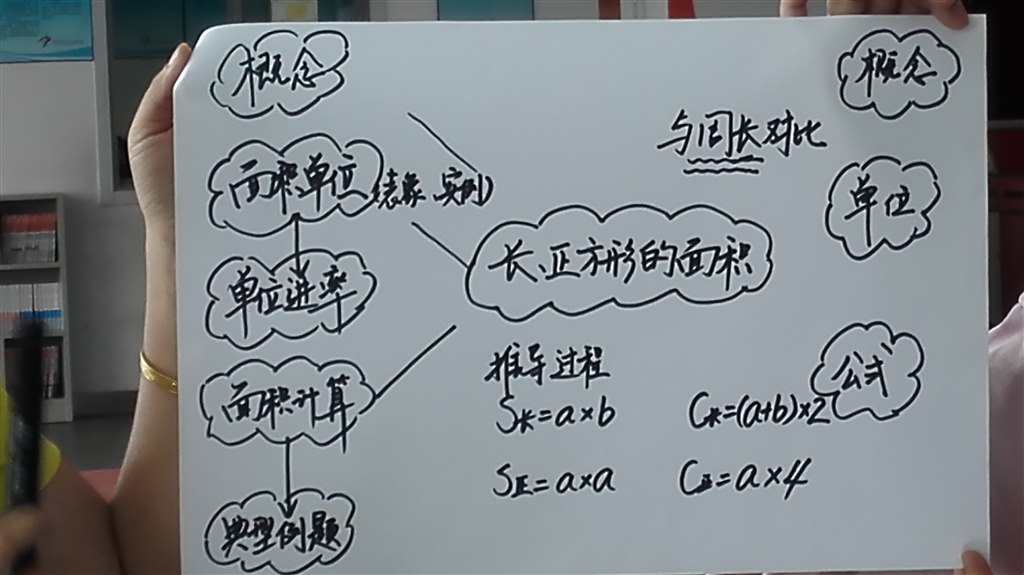 概念
概念
与周长对比
面积单位(表象、实例)
单位
长、正方形的面积
单位进率
推导过程
公式
面积计算
S长=a×b
C长=(a+b)×2
S正=a×a
C正=a×4
典型例题